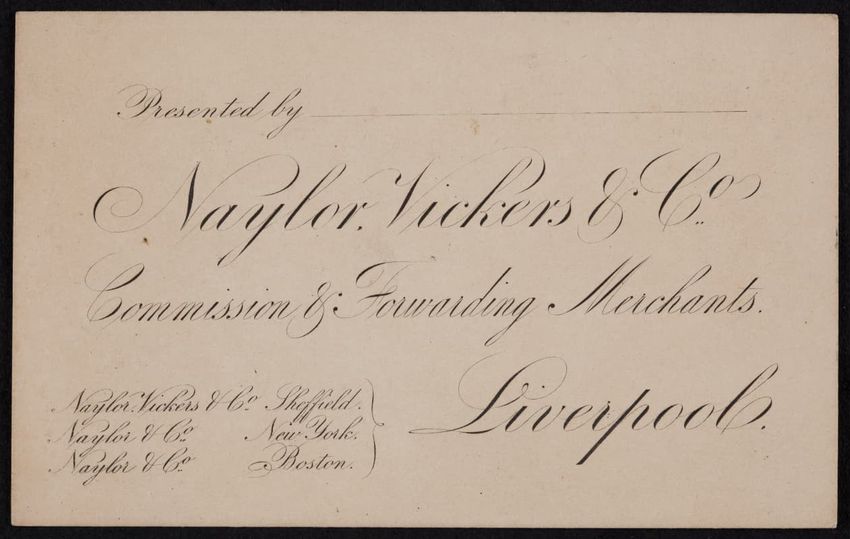 Presented by
Naylor, Vickers & Co.
Commission & Forwarding Merchants.
Liverpool.
Naylor, Vickers & Co. Sheffield.
Naylor & Co. New York.
Naylor & Co. Boston.